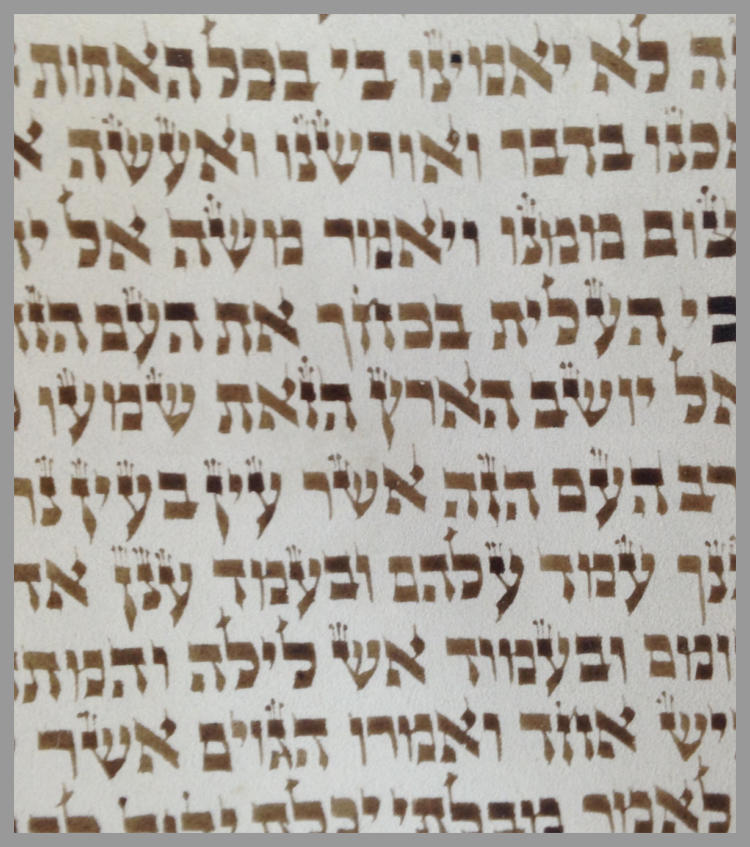 ה לא יאמינו בי בכל האתות
כנו בדבר ואורשנו ואעשה
צום ממנו ויאמר משה אל
כי העלית בכחך את העם הזה
אל יושב הארץ הזאת שמעו
רב העם הזה אשר עין בעין נר
נך עמד עלהם ובעמד ענן א
ומם ובעמוד אש לילה והמת
יש אחד ואמרו הגוים אשר
לאמר מבלתי יכלת יהוה